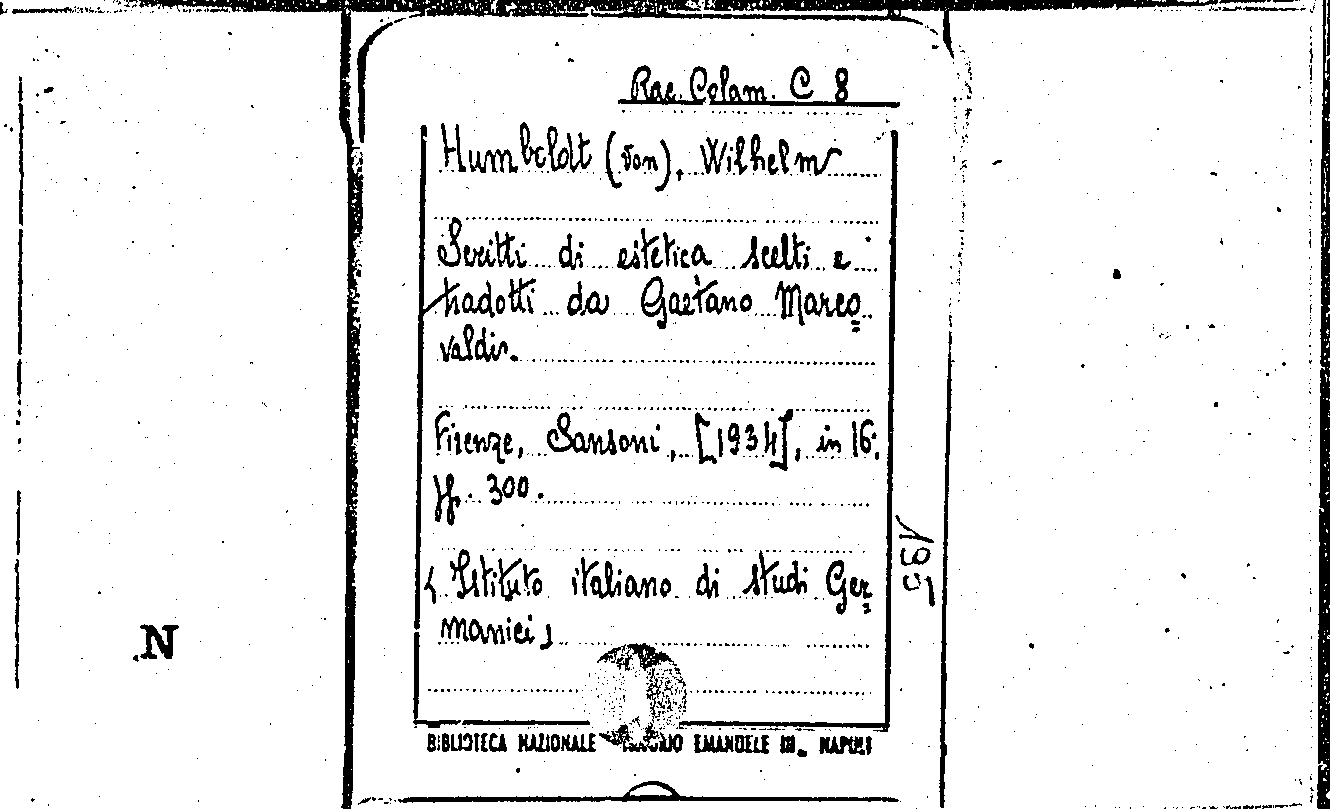 Rac. Colam. C 8
Humboldt (von), Wilhelm
Scritti di estetica scelti e
tradotti da Gaetano Marco=
valdi.
Firenze, Sansoni, [1934], in 16.
pp. 300.
(Istituto italiano di studi Ger=
manici)
195
N
BIBLIOTECA NAZIONALE EMANUELE III. NAPOLI